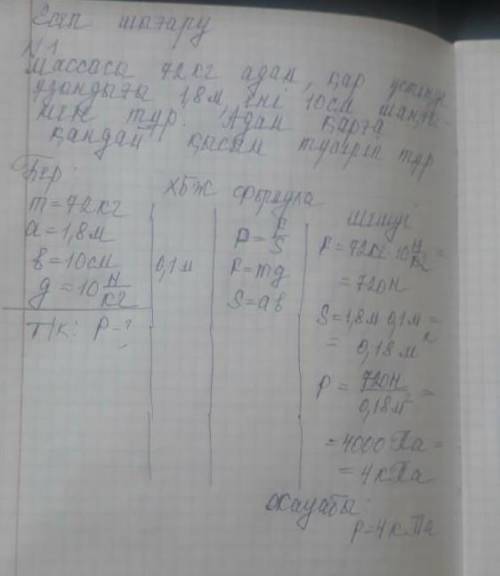 Есеп шығару
№1
Массасы 72кг адам, қар үстінде
ұзындығы 1,8м, ені 10см шаңғы-
мен тұр. Адам қарға
қандай қысым түсіріп тұр
Бер:
m=72кг
a=1,8м
b=10см
g=10 Н/кг
Т/к: P-?
ХБЖ
0,1м
формула
P=F/S
F=mg
S=ab
Шешуі
F=72кг·10 Н/кг=
=720Н
S=1,8м·0,1м=
=0,18м²
P=720Н/0,18м²=
=4000Па=
=4кПа
Жауабы:
P=4кПа